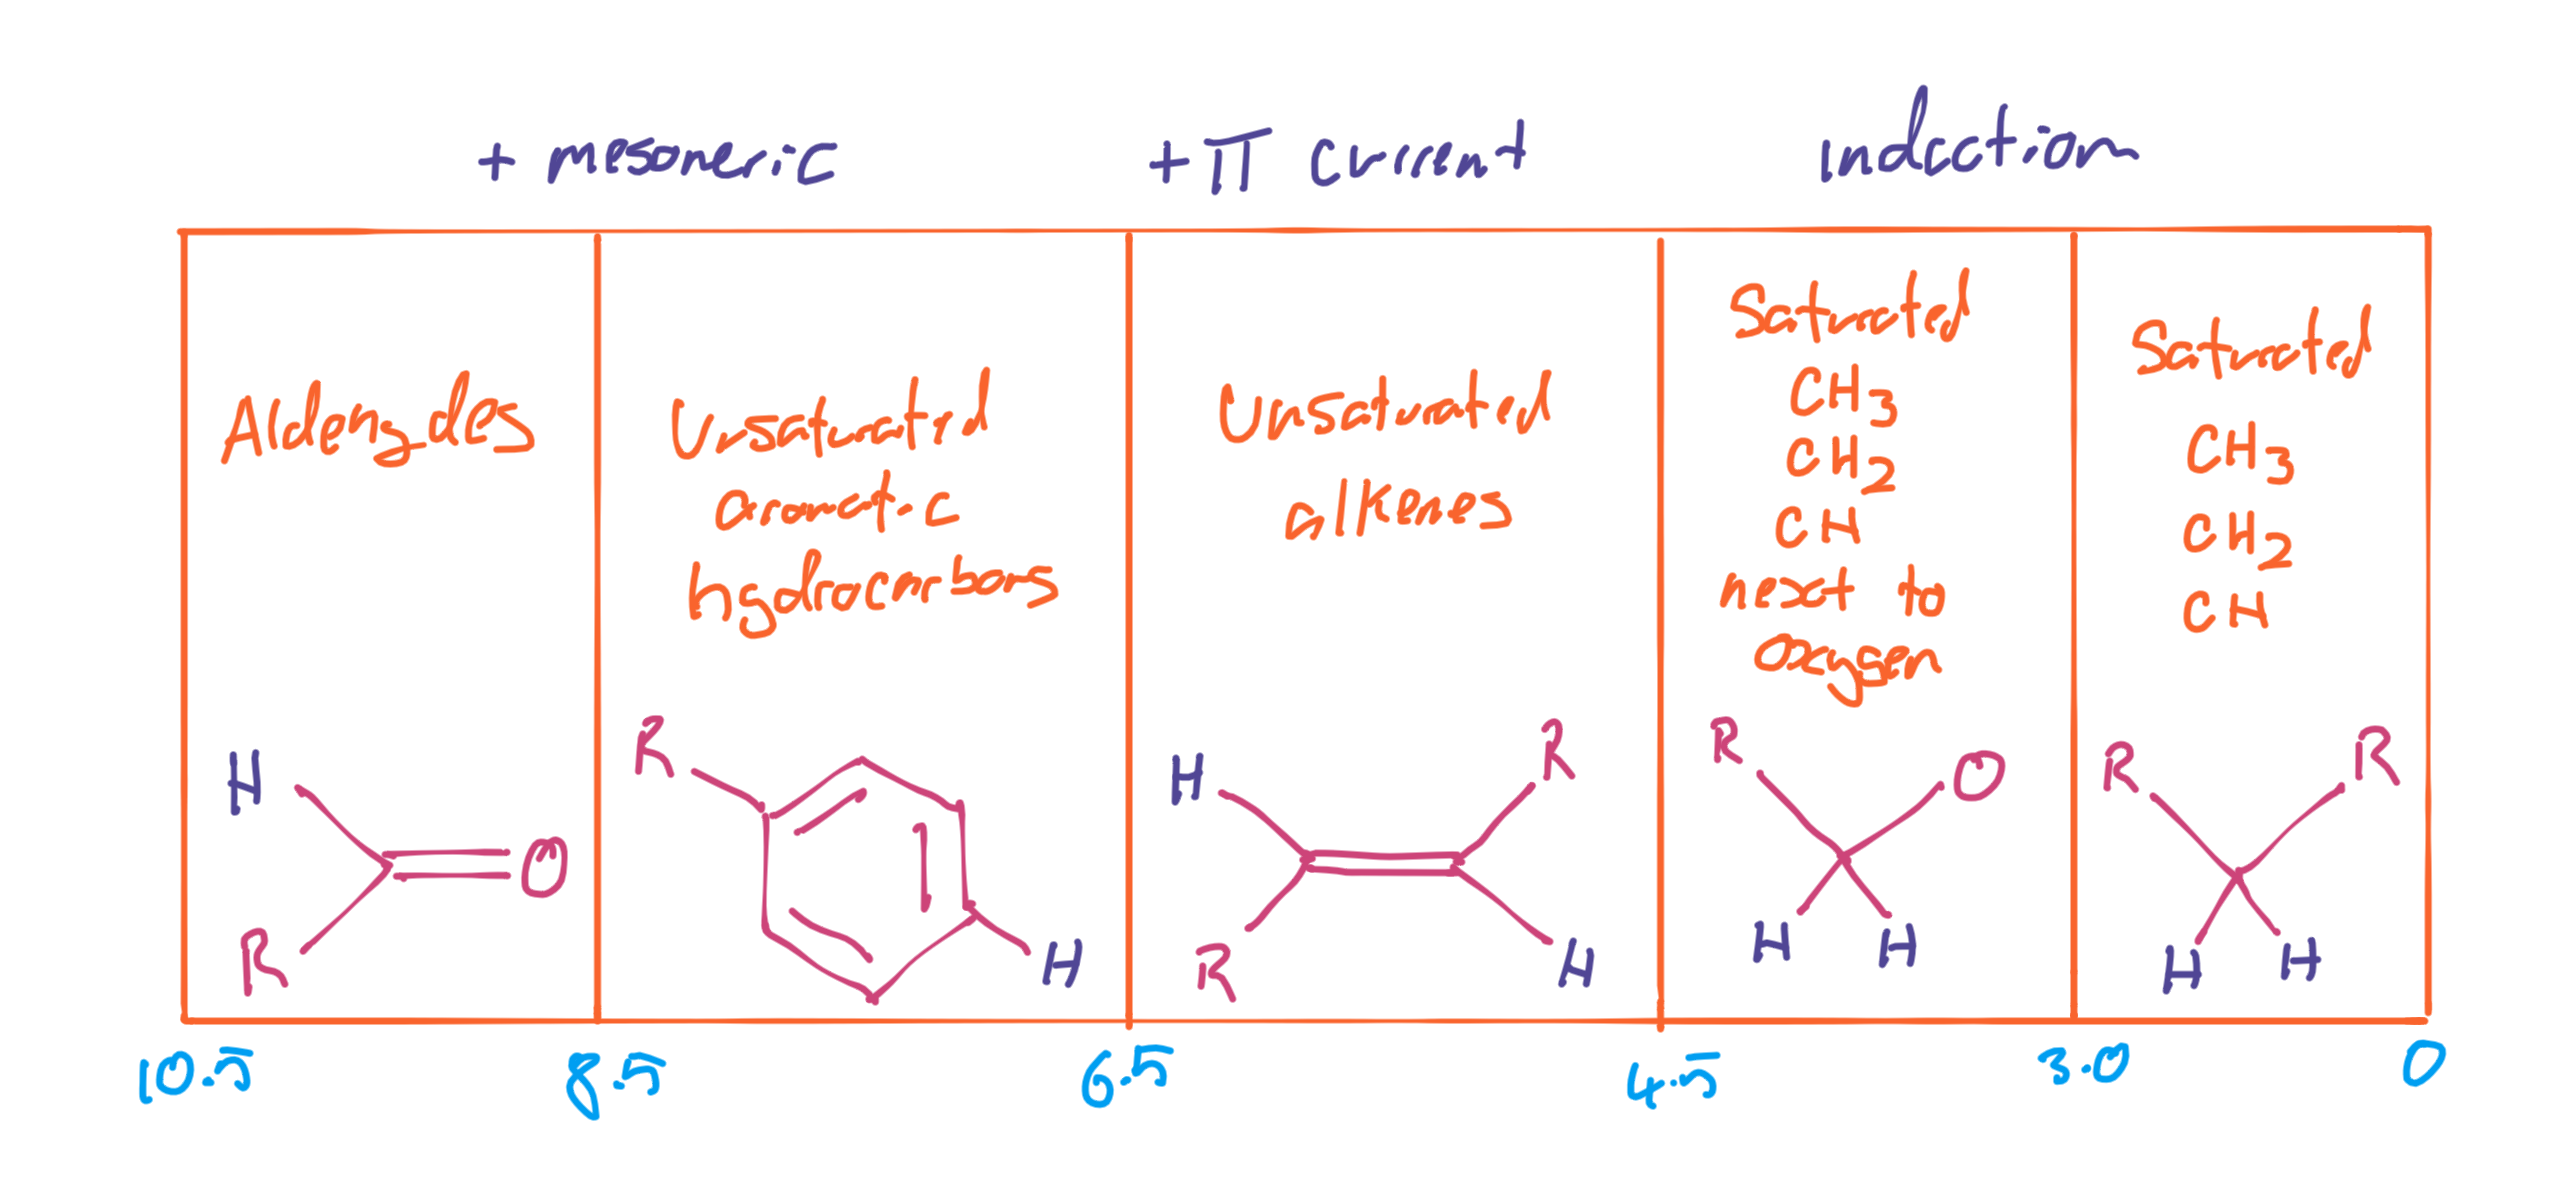 + mesomeric
+ π current
induction
Aldehydes
Unsaturated
aromatic
hydrocarbons
Unsaturated
alkenes
Saturated
CH3
CH2
CH
next to
oxygen
Saturated
CH3
CH2
CH
H
O
R
R
H
H
R
R
H
R
O
H
H
R
R
H
H
10.5
8.5
6.5
4.5
3.0
0